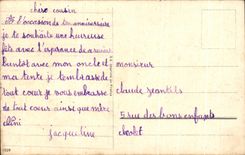 chère cousine
à l'occasion de ton anniversaire
je te souhaite une heureuse
fête avec l'espérance de
bientôt avec mon oncle et
ma tante je t'embrasse de
tout coeur je vous embrasse
de tout coeur ainsi que mère
Jacqueline
monsieur
claude
5 rue des bons enfants
cholet